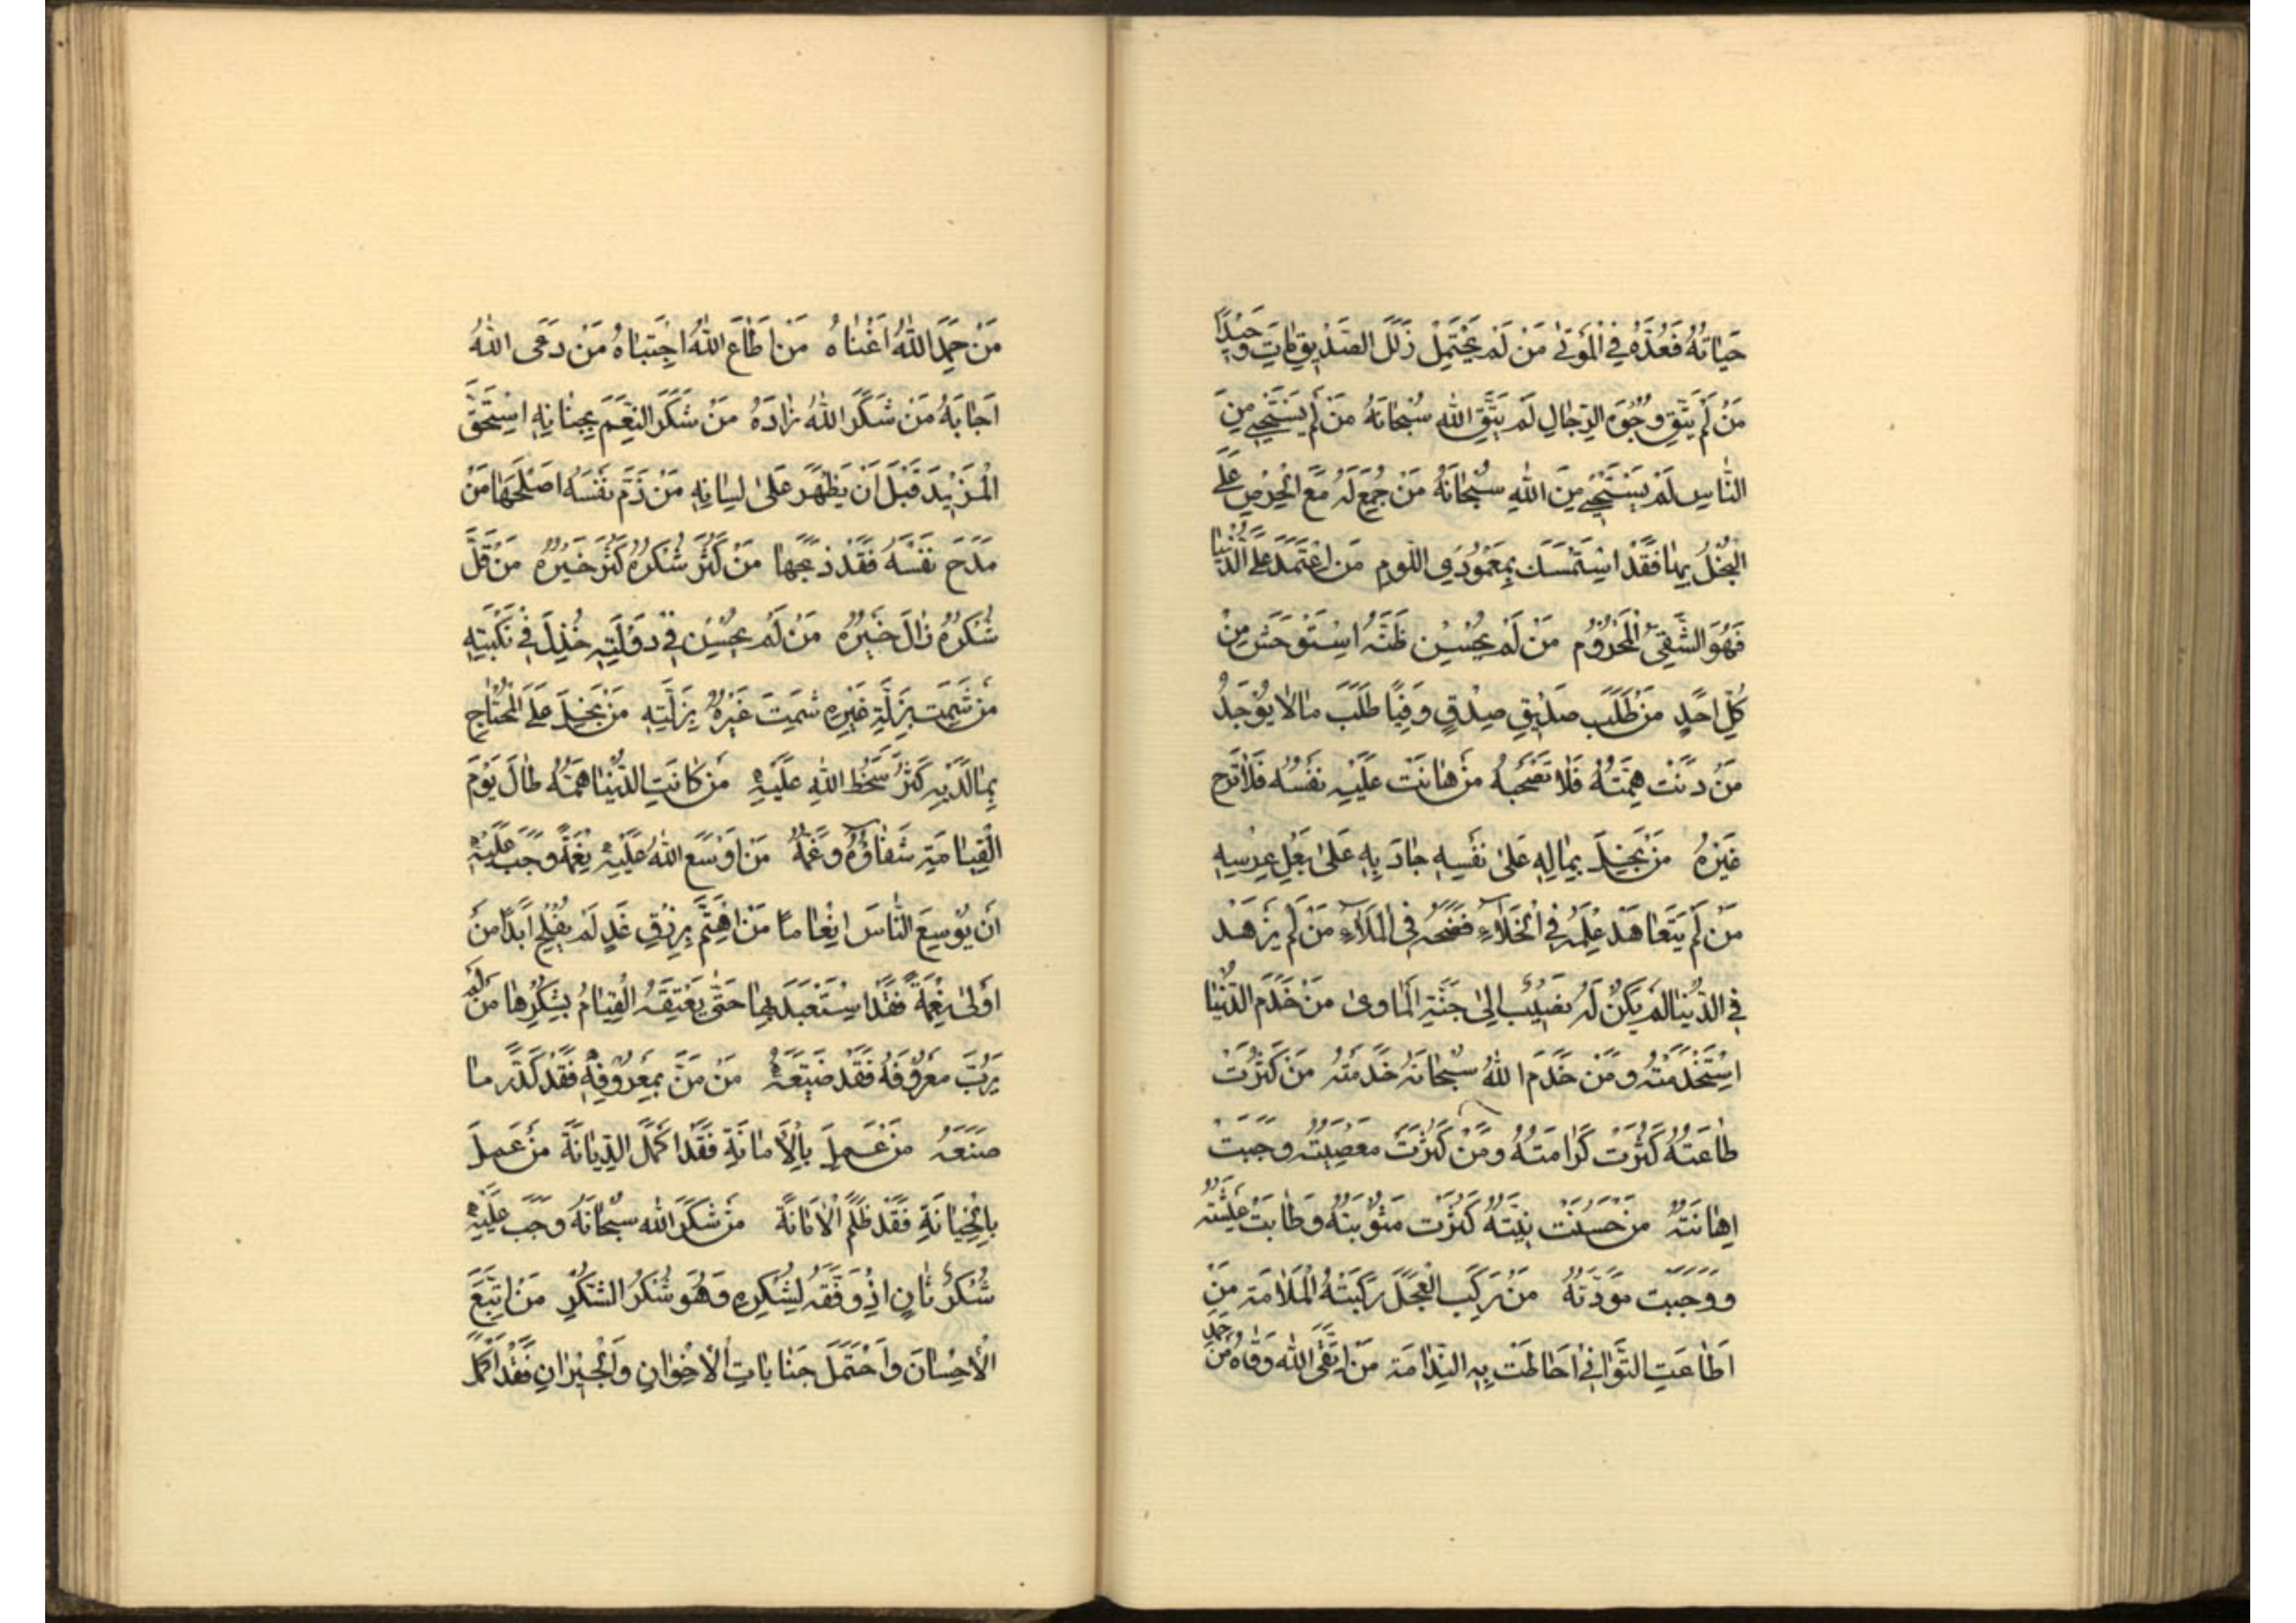 حَيَاتُهُ فَعُدَّهُ فِي الْمَوْتٰى مَنْ لَمْ يَحْتَمِلْ زَلَلَ الصَّدِيقِ مَاتَ وَحِيْدًا
مَنْ لَمْ يَتَّقِ وُجُوهَ الرِّجَالِ لَمْ يَتَّقِ اللهَ سُبْحَانَهُ مَنْ لَمْ يَسْتَحْيِ مِنَ
النَّاسِ لَمْ يَسْتَحْيِ مِنَ اللهِ سُبْحَانَهُ مَنْ جُمِعَ لَهُ مَعَ الْحِرْصِ عَلَى
الْبُخْلُ بِهَا فَقَدْ اسْتَمْسَكَ بِعَمُودَيِ اللَّومِ مَنِ اعْتَمَدَ عَلَى الدُّنْيَا
فَهُوَ الشَّقِيُّ الْمَحْرُوْمُ مَنْ لَمْ يُحْسِنْ ظَنَّهُ اسْتَوْحَشَ مِنْ
كُلِّ اَحَدٍ مَنْ طَلَبَ صَدِيقَ صِدْقٍ وَفِيًّا طَلَبَ مَا لَا يُوْجَدُ
مَنْ دَنَتْ هِمَّتُهُ فَلَا تَصْحَبْهُ مَنْ هَانَتْ عَلَيْهِ نَفْسُهُ فَلَا تَرْجُ
خَيْرَهُ مَنْ بَخِلَ بِمَالِهِ عَلٰى نَفْسِهِ جَادَ بِهِ عَلٰى بَعْلِ عِرْسِهِ
مَنْ لَمْ يَتَعَاهَدْ عِلْمَهُ فِي الْخَلَاءِ فَضَحَهُ فِي الْمَلَاءِ مَنْ لَمْ يَزْهَدْ
فِي الدُّنْيَا لَمْ يَكُنْ لَهُ نَصِيْبٌ اِلٰى جَنَّةِ الْمَاوٰى مَنْ خَدَمَ الدُّنْيَا
اسْتَخْدَمَتْهُ وَمَنْ خَدَمَ اللهَ سُبْحَانَهُ خَدَمَتْهُ مَنْ كَثُرَتْ
طَاعَتُهُ كَثُرَتْ كَرَامَتُهُ وَمَنْ كَثُرَتْ مَعْصِيَتُهُ وَجَبَتْ
اِهَانَتُهُ مَنْ حَسُنَتْ نِيَّتُهُ كَثُرَتْ مَثُوْبَتُهُ وَطَابَتْ عِيْشَتُهُ
وَوَجَبَتْ مَوَدَّتُهُ مَنْ رَكِبَ الْعَجَلَ رَكِبَتْهُ الْمَلَامَةُ مَنْ
اَطَاعَ التَّوَانِيْ اَحَاطَتْ بِهِ النِّدَامَةُ مَنِ اتَّقَى اللهَ وَقَاهُ مَنْ حَمِدَ
مَنْ حَمِدَ اللهَ اَغْنَاهُ مَنْ اَطَاعَ اللهَ اجْتَبَاهُ مَنْ دَعَى اللهَ
اَجَابَهُ مَنْ شَكَرَ اللهَ زَادَهُ مَنْ شَكَرَ النِّعَمَ بِجَنَانِهِ اسْتَحَقَّ
الْمَزِيْدَ قَبْلَ اَنْ يَظْهَرَ عَلٰى لِسَانِهِ مَنْ ذَمَّ نَفْسَهُ اَصْلَحَهَا مَنْ
مَدَحَ نَفْسَهُ فَقَدْ ذَبَحَهَا مَنْ كَثُرَ شُكْرُهُ كَثُرَ خَيْرُهُ مَنْ قَلَّ
شُكْرُهُ زَالَ خَيْرُهُ مَنْ لَمْ يُحْسِنْ فِي دَوْلَتِهِ خُذِلَ فِي نَكْبَتِهِ
مَنْ شَمِتَ بِزَلَّةِ غَيْرِهِ شَمِتَ غَيْرُهُ بِزَلَّتِهِ مَنْ بَخِلَ عَلَى الْمُحْتَاجِ
بِمَا لَدَيْهِ كَثُرَ سَخَطُ اللهِ عَلَيْهِ مَنْ كَانَتِ الدُّنْيَا هَمَّهُ طَالَ يَوْمَ
الْقِيَامَةِ شَقَاؤُهُ وَغَمُّهُ مَنْ اَوْسَعَ اللهُ عَلَيْهِ نِعْمَةً وَجَبَ عَلَيْهِ
اَنْ يُوْسِعَ النَّاسَ اِنْعَامًا مَنِ اهْتَمَّ بِرِزْقِ غَدٍ لَمْ يُفْلِحْ اَبَدًا مَنْ
اَوْلٰى نِعْمَةً فَقَدْ اسْتَعْبَدَ بِهَا حَتّٰى يَعْتِقَهُ الْقِيَامُ بِشُكْرِهَا مَنْ لَمْ
يَرُبَّ مَعْرُوْفَهُ فَقَدْ ضَيَّعَهُ مَنْ مَنَّ بِمَعْرُوفِهِ فَقَدْ كَدَّرَ مَا
صَنَعَهُ مَنْ عَمِلَ بِالْاَمَانَةِ فَقَدْ اَكْمَلَ الدِّيَانَةَ مَنْ عَمِلَ
بِالْخِيَانَةِ فَقَدْ ظَلَمَ الْاَمَانَةَ مَنْ شَكَرَ اللهَ سُبْحَانَهُ وَجَبَ عَلَيْهِ
شُكْرٌ ثَانٍ اِذْ وَفَّقَهُ لِشُكْرِهِ وَهُوَ شُكْرُ الشُّكْرِ مَنِ اتَّبَعَ
الْاِحْسَانَ وَاحْتَمَلَ جَنَايَاتِ الْاِخْوَانِ وَالْجِيْرَانِ فَقَدْ اَكْمَلَ